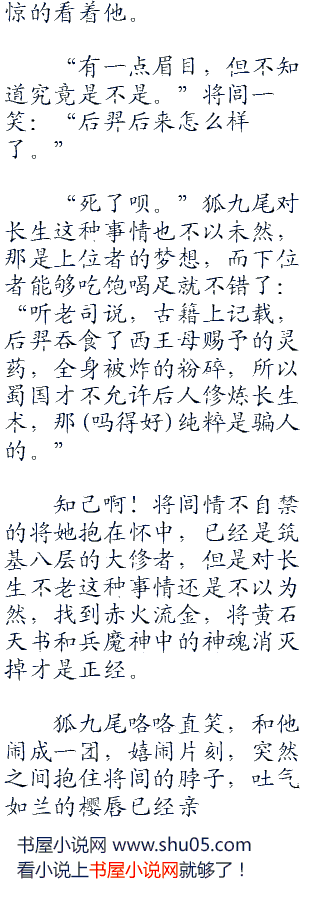 惊的看着他。
“有一点眉目，但不知
道究竟是不是。”将闾一
笑：“后羿后来怎么样
了。”
“死了呗。”狐九尾对
长生这种事情也不以未然，
那是上位者的梦想，而下位
者能够吃饱喝足就不错了：
“听老司说，古籍上记载，
后羿吞食了西王母赐予的灵
药，全身被炸的粉碎，所以
蜀国才不允许后人修炼长生
术，那(吗得好)纯粹是骗人
的。”
知己啊！将闾情不自禁
的将她抱在怀中，已经是筑
基八层的大修者，但是对长
生不老这种事情还是不以为
然，找到赤火流金，将黄石
天书和兵魔神中的神魂消灭
掉才是正经。
狐九尾咯咯直笑，和他
闹成一团，嬉闹片刻，突然
之间抱住将闾的脖子，吐气
如兰的樱唇已经亲
书屋小说网 www.shu05.com
看小说上书屋小说网就够了！